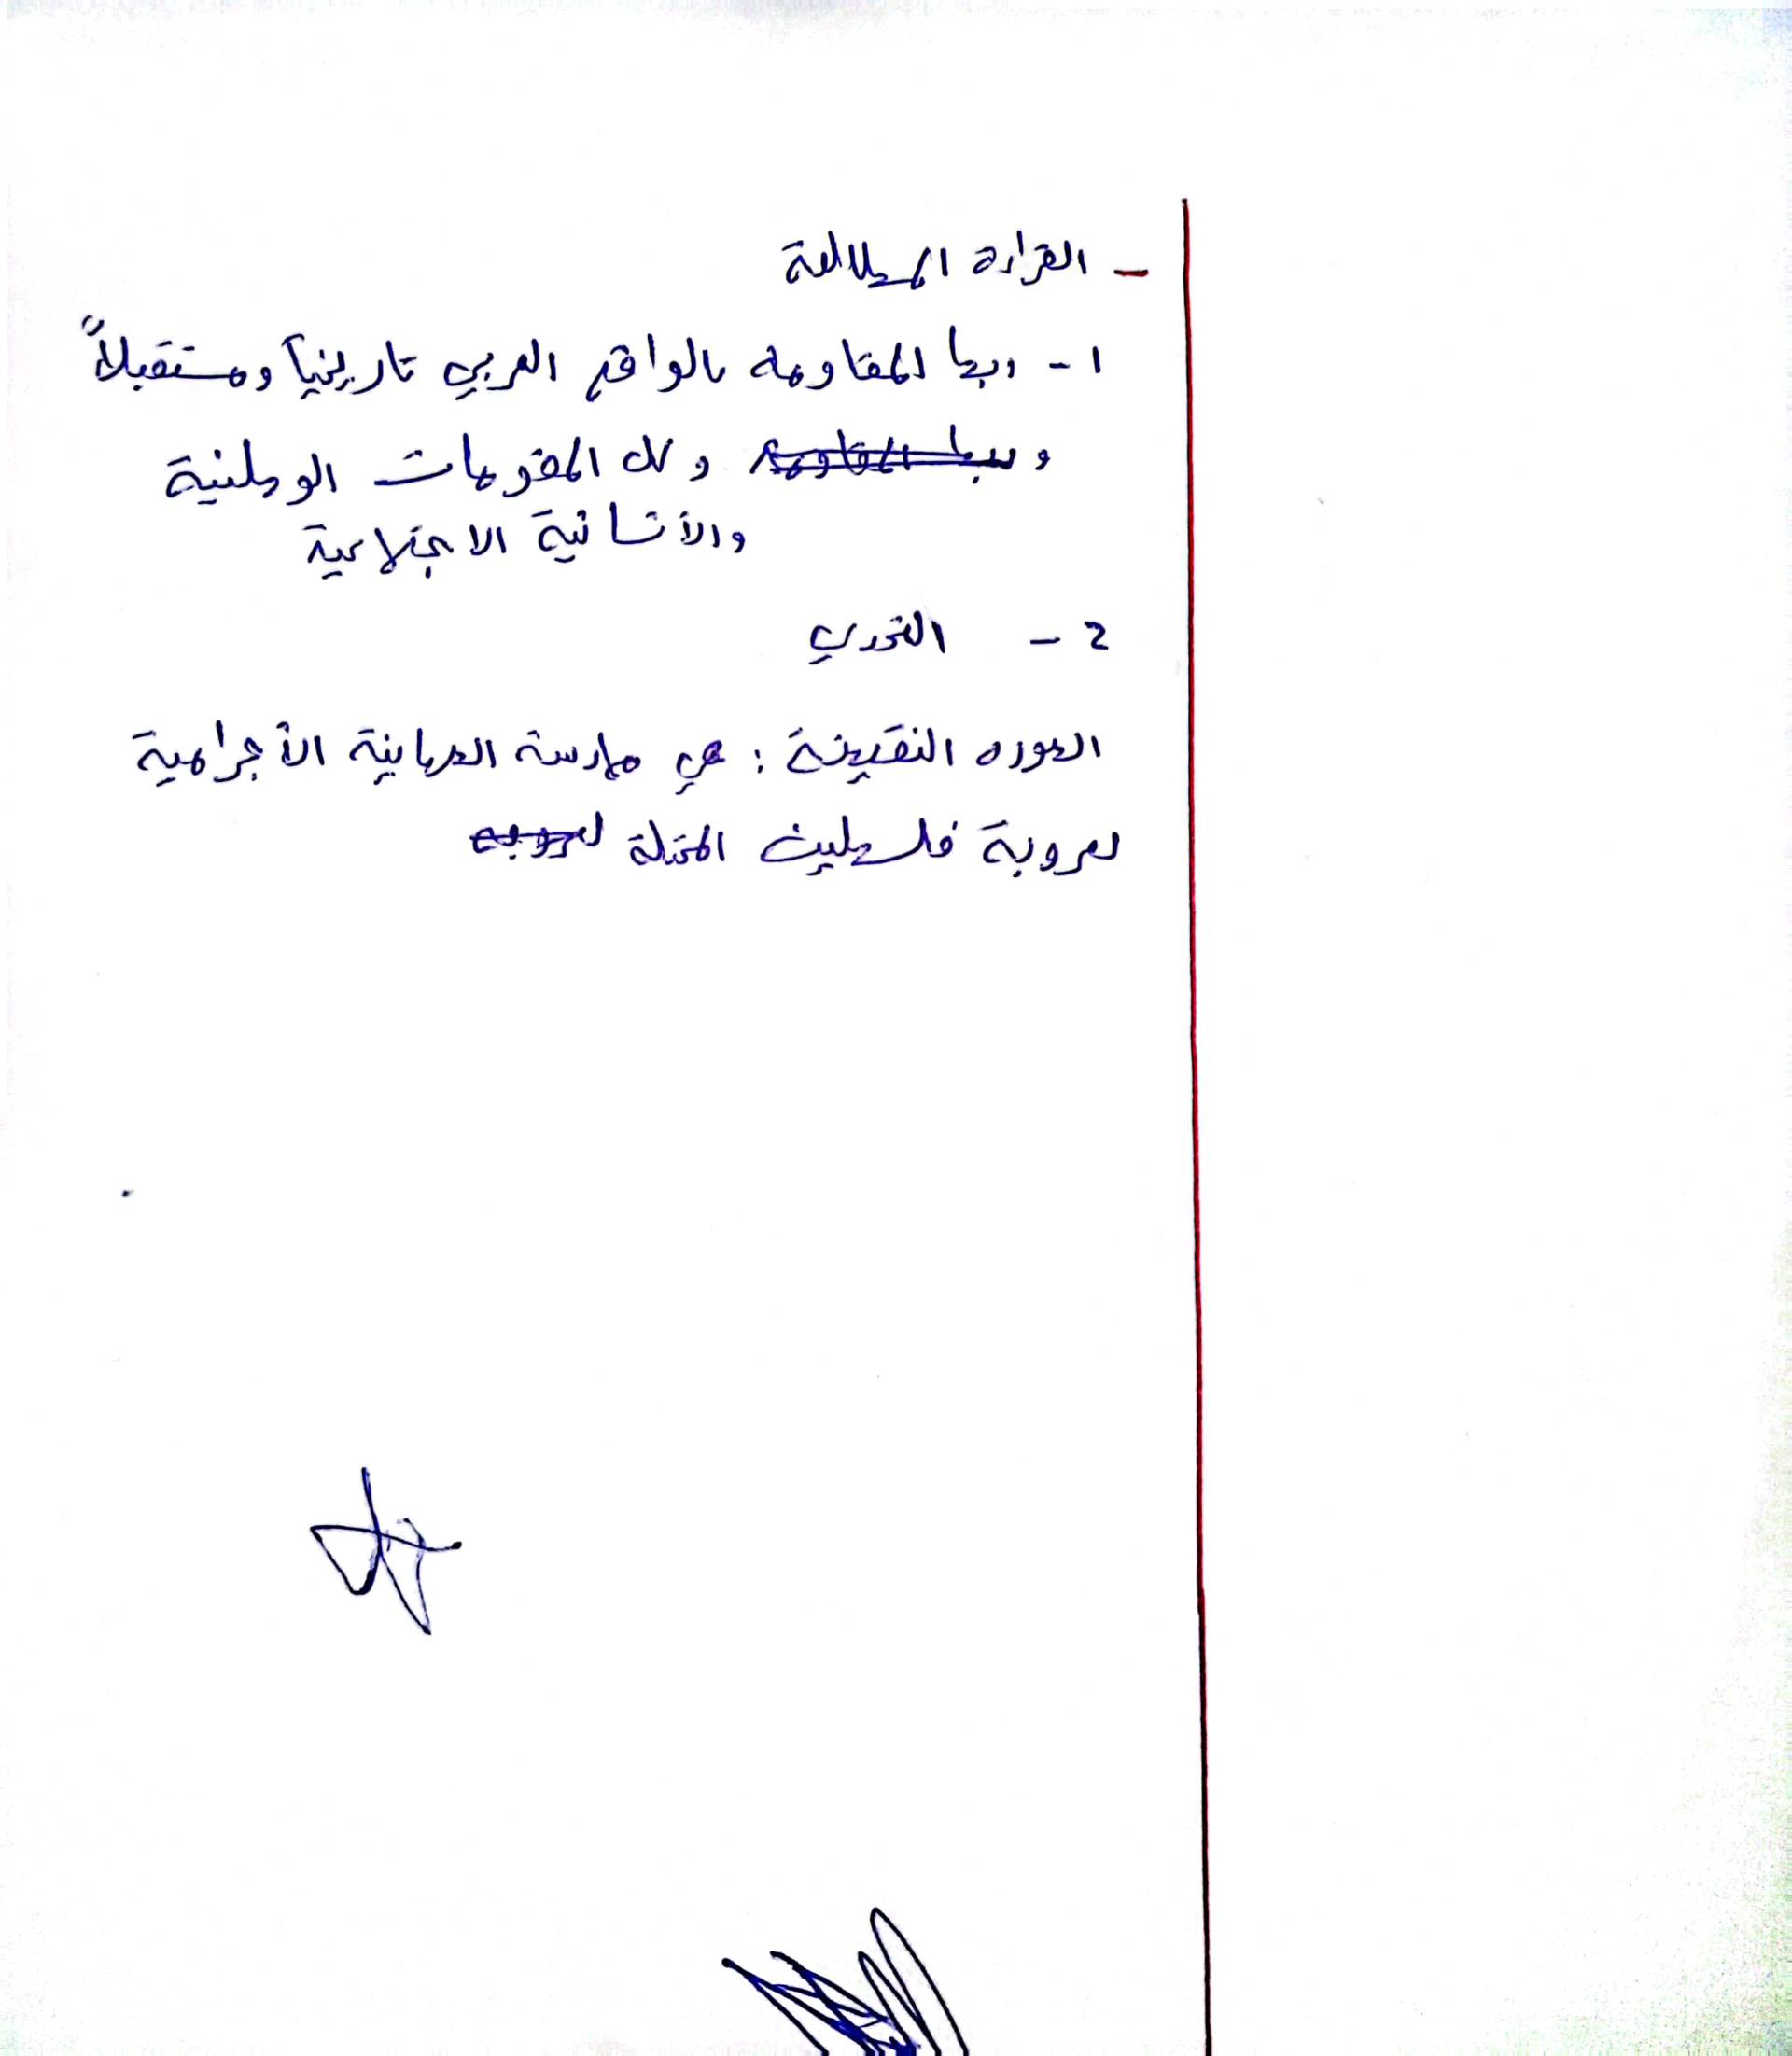 - القراءة المطالعة
1 - ربط المقاومة بالواقع العربي تاريخياً ومستقبلاً
و ربط المقاومة وكل المقومات الوطنية
والأنسانية الاجتماعية
2 - التحدي
الصوره النقيضة : هي ممارسة الصهاينة الأجرامية
لعروبة فلسطين المحتلة لعروبه